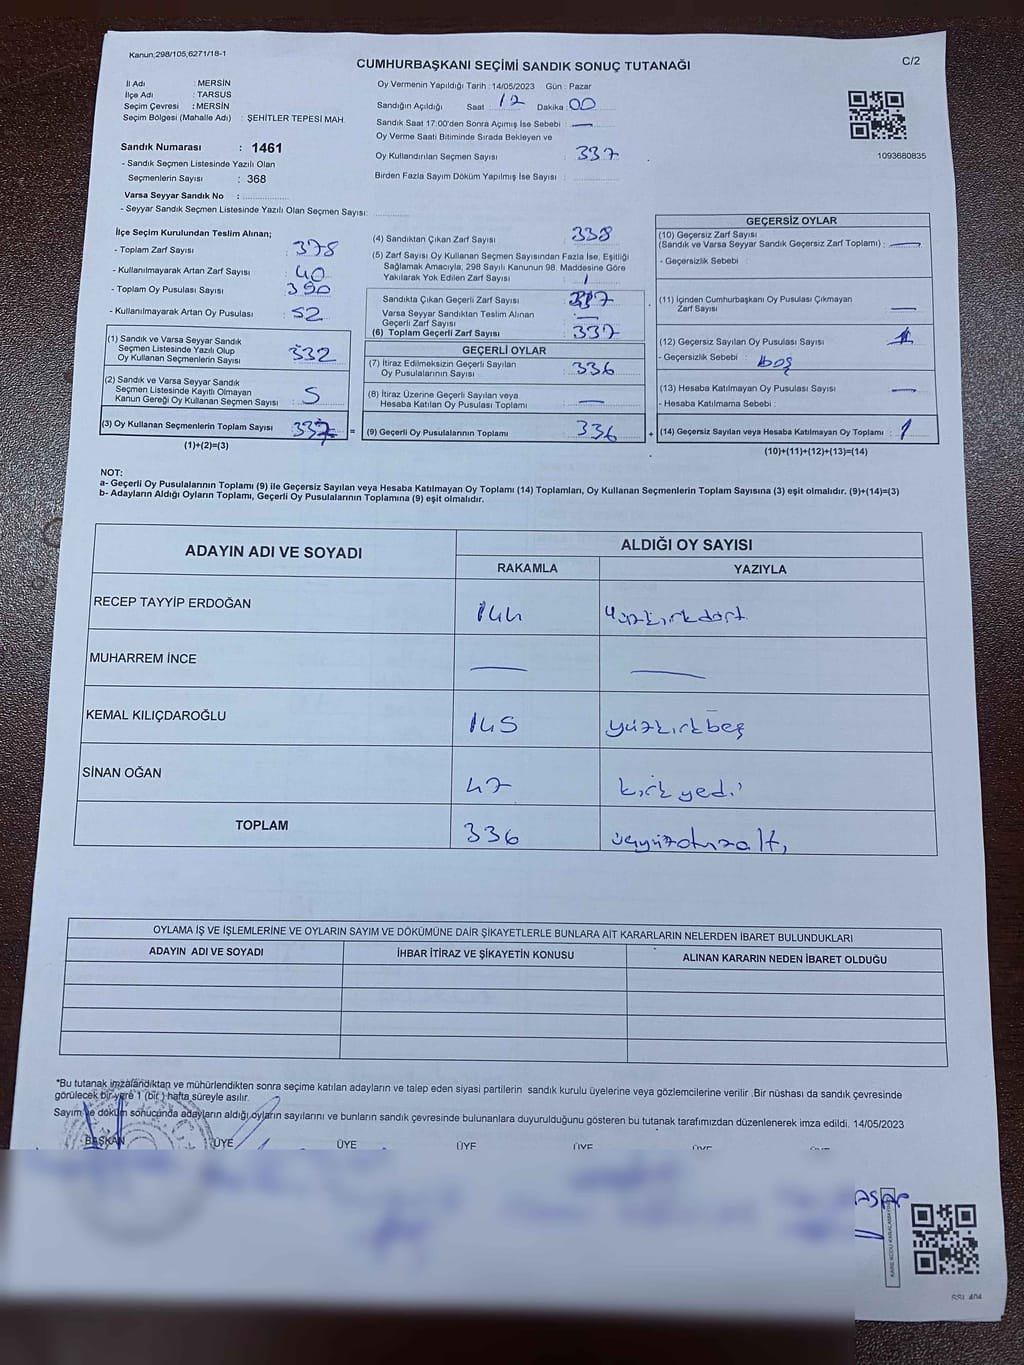 Kanun:298/105,6271/18-1
CUMHURBAŞKANI SEÇİMİ SANDIK SONUÇ TUTANAĞI
C/2
İl Adı : MERSİN
İlçe Adı : TARSUS
Seçim Çevresi : MERSİN
Seçim Bölgesi (Mahalle Adı) : ŞEHİTLER TEPESİ MAH.
Sandık Numarası : 1461
- Sandık Seçmen Listesinde Yazılı Olan
Seçmenlerin Sayısı : 368
Varsa Seyyar Sandık No :
- Seyyar Sandık Seçmen Listesinde Yazılı Olan Seçmen Sayısı:
Oy Vermenin Yapıldığı Tarih : 14/05/2023 Gün : Pazar
Sandığın Açıldığı Saat 12 Dakika : 00
Sandık Saat 17:00'den Sonra Açımış İse Sebebi : —
Oy Verme Saati Bitiminde Sırada Bekleyen ve
Oy Kullandırılan Seçmen Sayısı : 337
Birden Fazla Sayım Döküm Yapılmış İse Sayısı :
1093680835
İlçe Seçim Kurulundan Teslim Alınan;
- Toplam Zarf Sayısı : 378
- Kullanılmayarak Artan Zarf Sayısı : 40
- Toplam Oy Pusulası Sayısı : 390
- Kullanılmayarak Artan Oy Pusulası : 52
(1) Sandık ve Varsa Seyyar Sandık
Seçmen Listesinde Yazılı Olup
Oy Kullanan Seçmenlerin Sayısı : 332
(2) Sandık ve Varsa Seyyar Sandık
Seçmen Listesinde Kayıtlı Olmayan
Kanun Gereği Oy Kullanan Seçmen Sayısı : 5
(3) Oy Kullanan Seçmenlerin Toplam Sayısı 337 =
(1)+(2)=(3)
(4) Sandıktan Çıkan Zarf Sayısı : 338
(5) Zarf Sayısı Oy Kullanan Seçmen Sayısından Fazla İse, Eşitliği
Sağlamak Amacıyla, 298 Sayılı Kanunun 98. Maddesine Göre
Yakılarak Yok Edilen Zarf Sayısı : 1
Sandıkta Çıkan Geçerli Zarf Sayısı : 337
Varsa Seyyar Sandıktan Teslim Alınan
Geçerli Zarf Sayısı : —
(6) Toplam Geçerli Zarf Sayısı : 337
GEÇERLİ OYLAR
(7) İtiraz Edilmeksizin Geçerli Sayılan
Oy Pusulalarının Sayısı : 336
(8) İtiraz Üzerine Geçerli Sayılan veya
Hesaba Katılan Oy Pusulası Toplamı : —
(9) Geçerli Oy Pusulalarının Toplamı : 336 +
GEÇERSİZ OYLAR
(10) Geçersiz Zarf Sayısı
(Sandık ve Varsa Seyyar Sandık Geçersiz Zarf Toplamı) : —
- Geçersizlik Sebebi :
(11) İçinden Cumhurbaşkanı Oy Pusulası Çıkmayan
Zarf Sayısı : —
(12) Geçersiz Sayılan Oy Pusulası Sayısı : 1
- Geçersizlik Sebebi : boş
(13) Hesaba Katılmayan Oy Pusulası Sayısı : —
- Hesaba Katılmama Sebebi :
(14) Geçersiz Sayılan veya Hesaba Katılmayan Oy Toplamı : 1
(10)+(11)+(12)+(13)=(14)
NOT:
a- Geçerli Oy Pusulalarının Toplamı (9) ile Geçersiz Sayılan veya Hesaba Katılmayan Oy Toplamı (14) Toplamları, Oy Kullanan Seçmenlerin Toplam Sayısına (3) eşit olmalıdır. (9)+(14)=(3)
b- Adayların Aldığı Oyların Toplamı, Geçerli Oy Pusulalarının Toplamına (9) eşit olmalıdır.
ADAYIN ADI VE SOYADI ALDIĞI OY SAYISI
RAKAMLA YAZIYLA
RECEP TAYYİP ERDOĞAN 144 Yüzkırkdört
MUHARREM İNCE — —
KEMAL KILIÇDAROĞLU 145 yüzkırkbeş
SİNAN OĞAN 47 kırkyedi
TOPLAM 336 üçyüzotuzaltı
OYLAMA İŞ VE İŞLEMLERİNE VE OYLARIN SAYIM VE DÖKÜMÜNE DAİR ŞİKAYETLERLE BUNLARA AİT KARARLARIN NELERDEN İBARET BULUNDUKLARI
ADAYIN ADI VE SOYADI İHBAR İTİRAZ VE ŞİKAYETİN KONUSU ALINAN KARARIN NEDEN İBARET OLDUĞU
*Bu tutanak imzalandıktan ve mühürlendikten sonra seçime katılan adayların ve talep eden siyasi partilerin sandık kurulu üyelerine veya gözlemcilerine verilir .Bir nüshası da sandık çevresinde
görülecek bir yere 1 (bir ) hafta süreyle asılır.
Sayım ve döküm sonucunda adayların aldığı oyların sayılarını ve bunların sandık çevresinde bulunanlara duyurulduğunu gösteren bu tutanak tarafımızdan düzenlenerek imza edildi. 14/05/2023
BAŞKAN ÜYE ÜYE ÜYE ÜYE ÜYE ÜYE